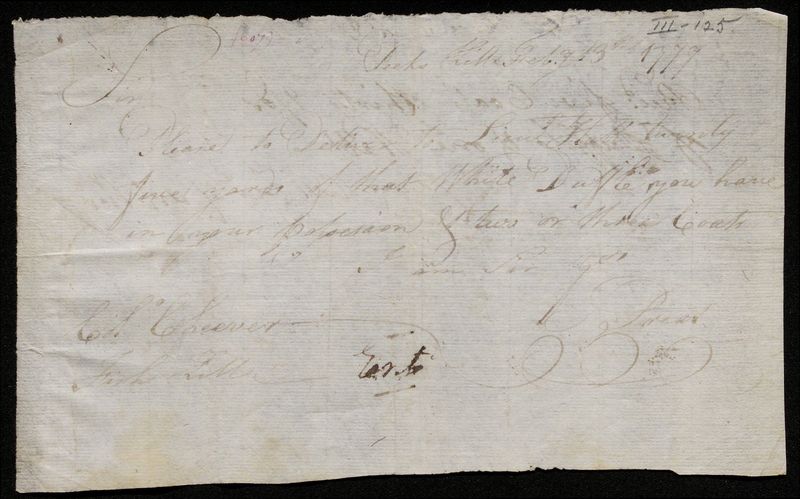 III-125.
Fish Kills Feby 13th 1779
Sir
Please to Deliver to Lieut twenty
five yards of that White Duffle you have
in your Posession & two or three Coats
I am Sir yrs
Cheever
Fish Kills
Ent